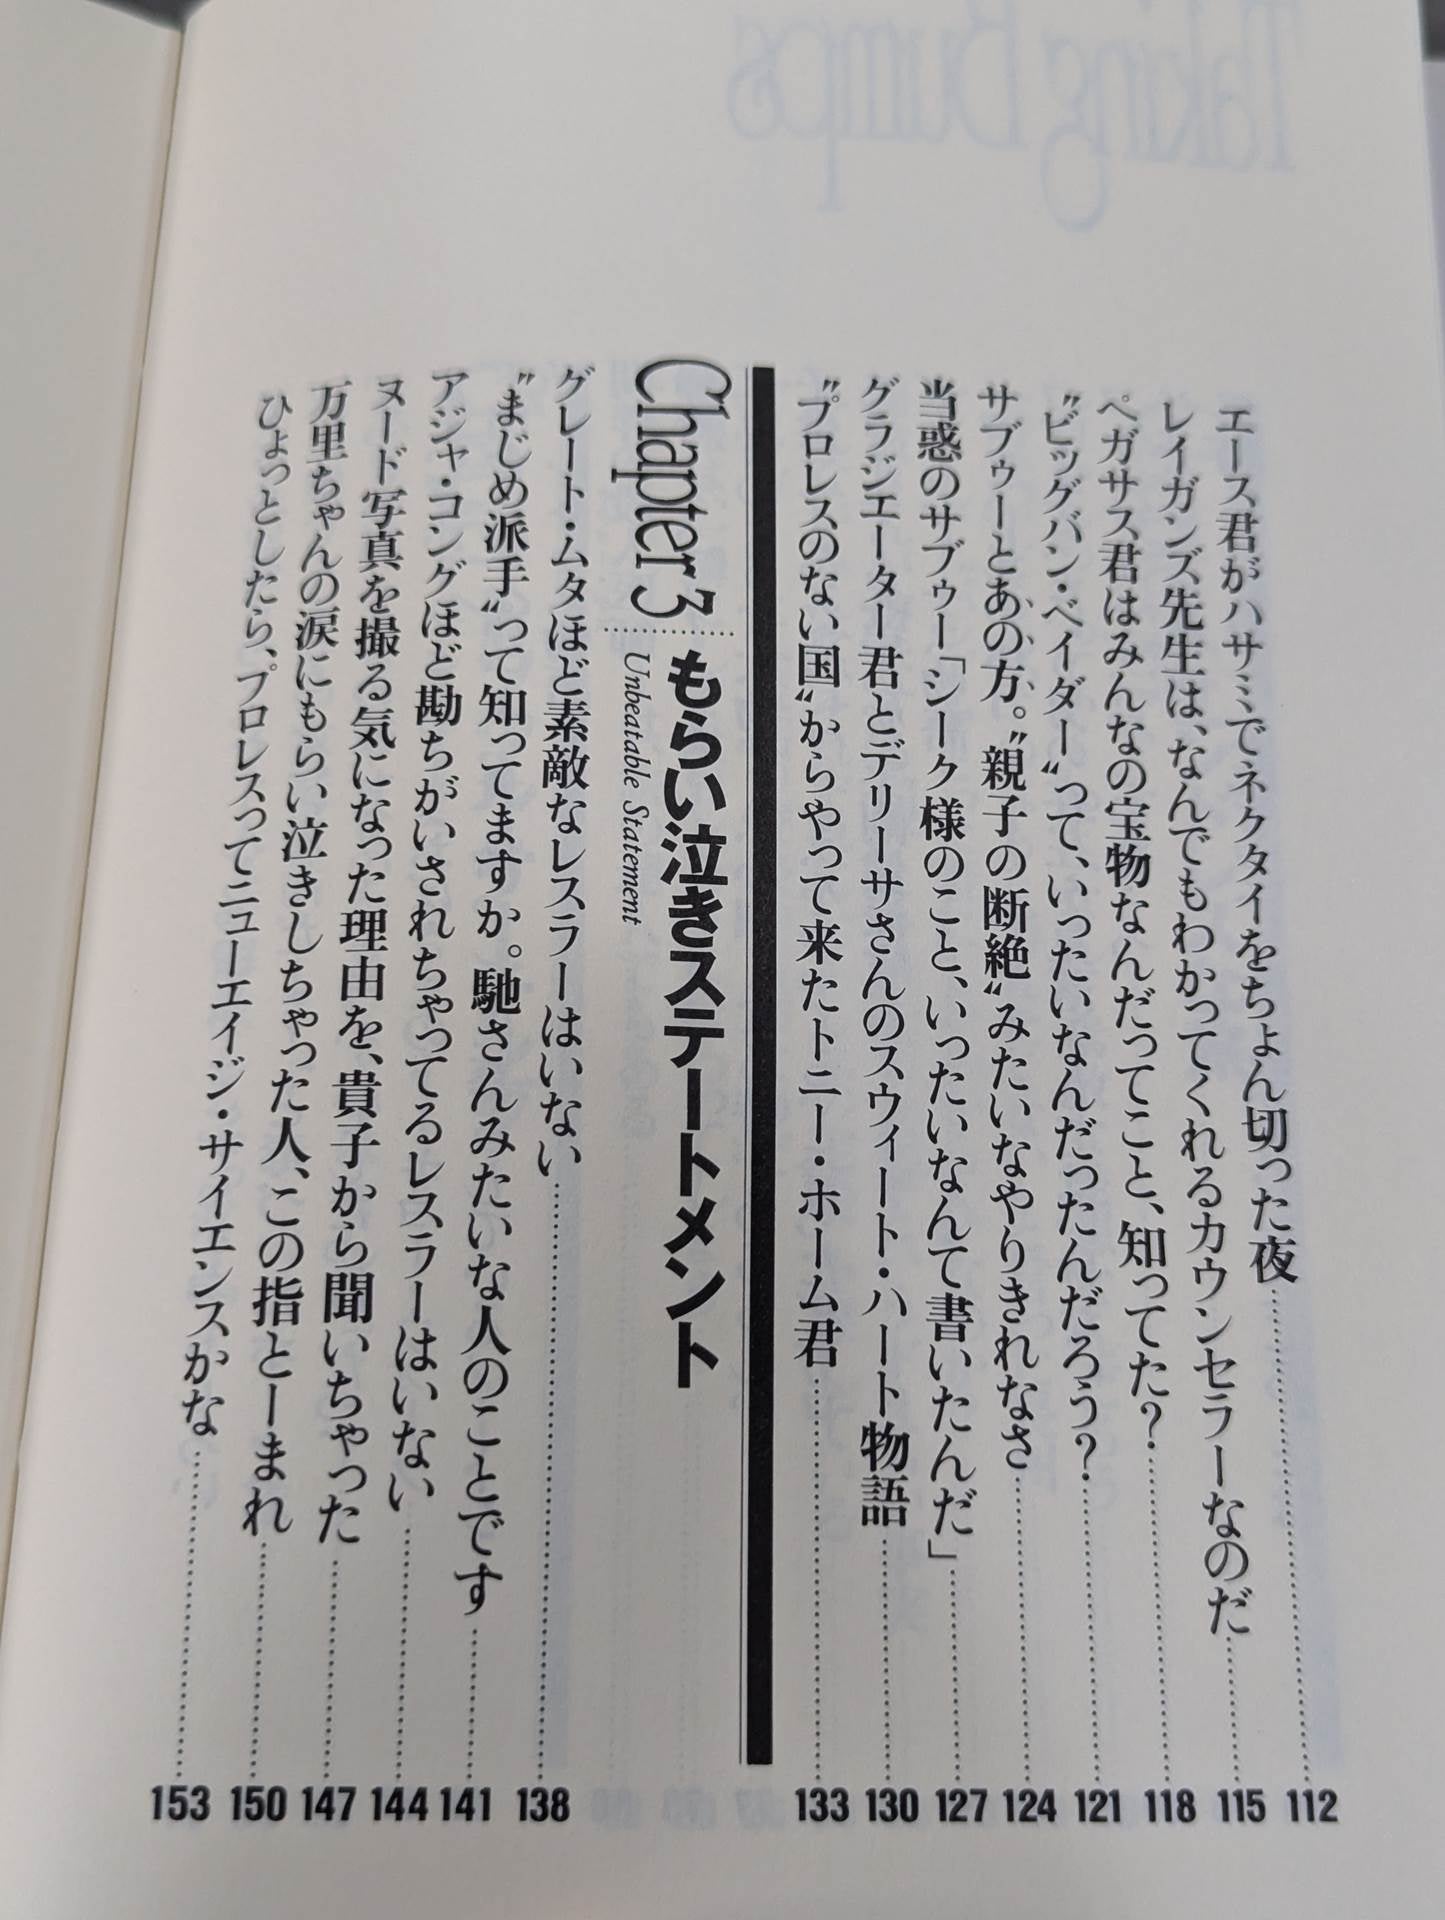 Taking Bumps
エース君がハサミでネクタイをちょん切った夜……112
レイガンズ先生は、なんでもわかってくれるカウンセラーなのだ……115
ペガサス君はみんなの宝物なんだってこと、知ってた?……118
〝ビッグバン・ベイダー〟って、いったいなんだったんだろう?……121
サブゥーとあの方。〝親子の断絶〟みたいなやりきれなさ……124
当惑のサブゥー「シーク様のこと、いったいなんて書いたんだ」……127
グラジエーター君とデリーサさんのスウィート・ハート物語……130
〝プロレスのない国〟からやって来たトニー・ホーム君……133
Chapter 3……もらい泣きステートメント
Unbeatable Statement
グレート・ムタほど素敵なレスラーはいない……138
〝まじめ派手〟って知ってますか。馳さんみたいな人のことです……141
アジャ・コングほど勘ちがいされちゃってるレスラーはいない……144
ヌード写真を撮る気になった理由を、貴子から聞いちゃった……147
万里ちゃんの涙にもらい泣きしちゃった人、この指とーまれ……150
ひょっとしたら、プロレスってニューエイジ・サイエンスかな……153